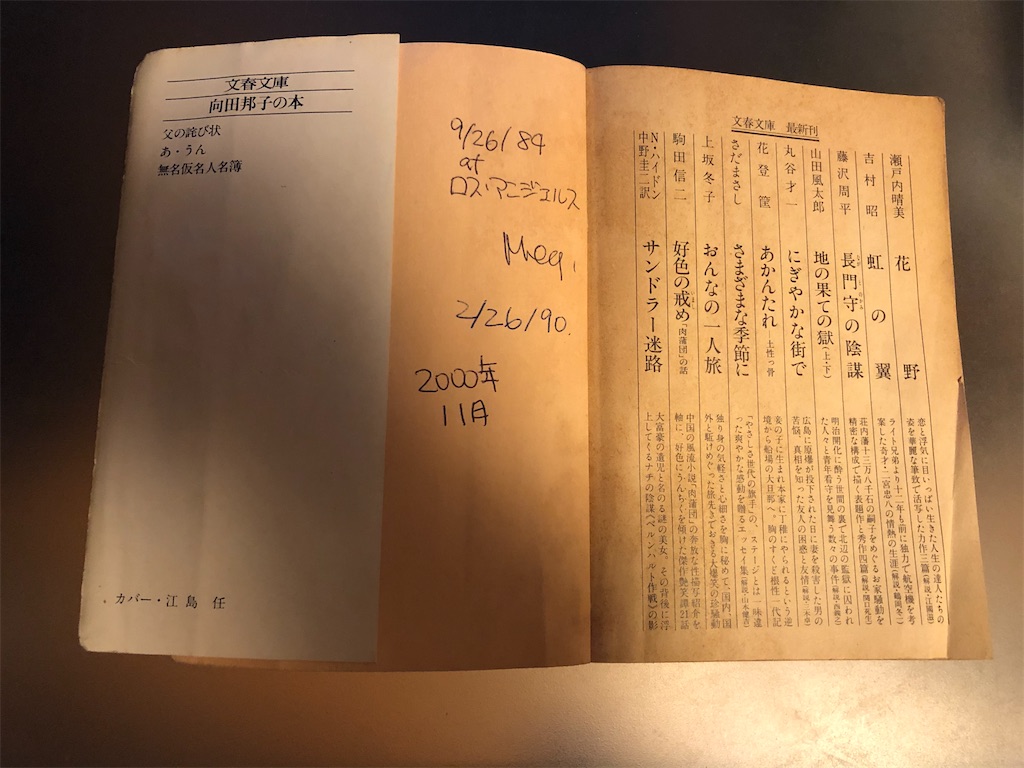 文春文庫
向田邦子の本
父の詫び状
あ・うん
無名仮名人名簿
カバー・江島 任
9/26/84
at
ロス・アンジェルス
Meg.
2/26/90.
2000年
11月
文春文庫 最新刊
瀬戸内晴美 花野 恋と浮気に目いっぱい生きた人生の達人たちの
姿を華麗な筆致で活写した力作三篇
吉村昭 虹の翼 ライト兄弟より十二年も前に独力で航空機を考
案した奇才・二宮忠八の情熱の生涯
藤沢周平 長門守の陰謀 荘内藩十三万八千石の嗣子をめぐるお家騒動を
精密な構成で描く表題作と秀作四篇
山田風太郎 地の果ての獄(上・下) 明治開化に酔う世間の裏で北辺の監獄に囚われ
た人々と青年看守を見舞う数々の事件
丸谷才一 にぎやかな街で 広島に原爆が投下された日に妻を殺害した男の
苦悩、真相を知った友人の困惑と友情
花登筐 あかんたれ 土性っ骨 妾の子に生まれ本家に丁稚にやられるという逆
境から船場の大旦那へ。胸のすくど根性一代記
さだまさし さまざまな季節に 「やさしさ世代の旗手」の、ステージとは一味違
った爽やかな感動を贈るエッセイ集
上坂冬子 おんなの一人旅 独り身の気軽さと心細さを胸に秘めて、国内、国
外と駆けめぐった旅先でおきる大爆笑の珍騒動
駒田信二 好色の戒め 「肉蒲団」の話 中国の風流小説「肉蒲団」の奔放な性描写紹介を
軸に、好色にうんちくを傾けた傑作艶笑譚21話
N・ハイドン
中野圭二訳 サンドラー迷路 大富豪の遺児と名のる謎の美女。その背後に浮
上してくるナチの陰謀〈ベルンハルト作戦〉の影